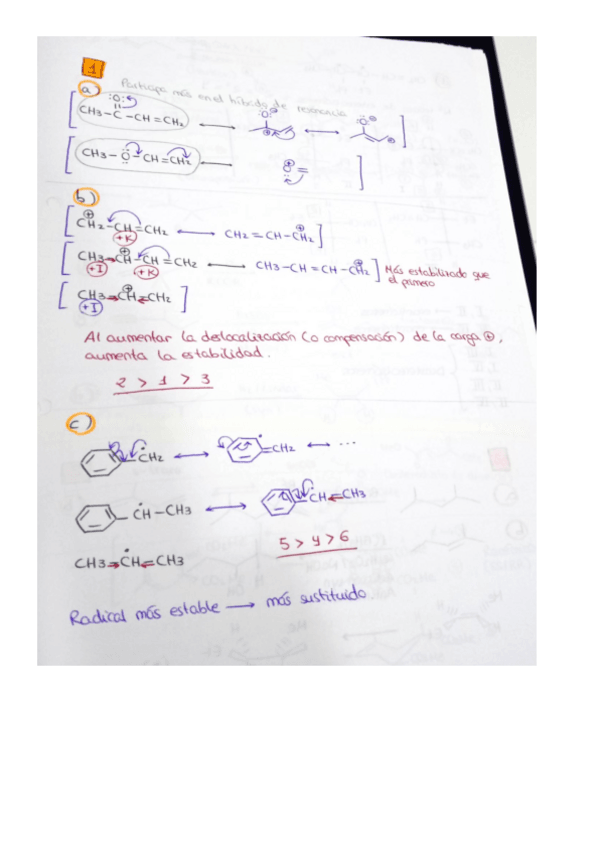 1
a) Participa más en el híbrido de resonancia
CH3-C-CH=CH2
:O:
CH3-O-CH=CH2
b)
CH2-CH=CH2 ⟷ CH2=CH-CH2
+K
CH3-CH-CH=CH2 ⟷ CH3-CH=CH-CH2 Más estabilizado que
el primero
+I +K
CH3 CH CH2
+I
Al aumentar la deslocalización (o compensación) de la carga ⊕,
aumenta la estabilidad.
2 > 1 > 3
c)
CH2 ⟷ =CH2 ⟷ ...
CH-CH3 ⟷ CH CH3
5 > 4 > 6
CH3 CH CH3
Radical más estable ⟶ más sustituido